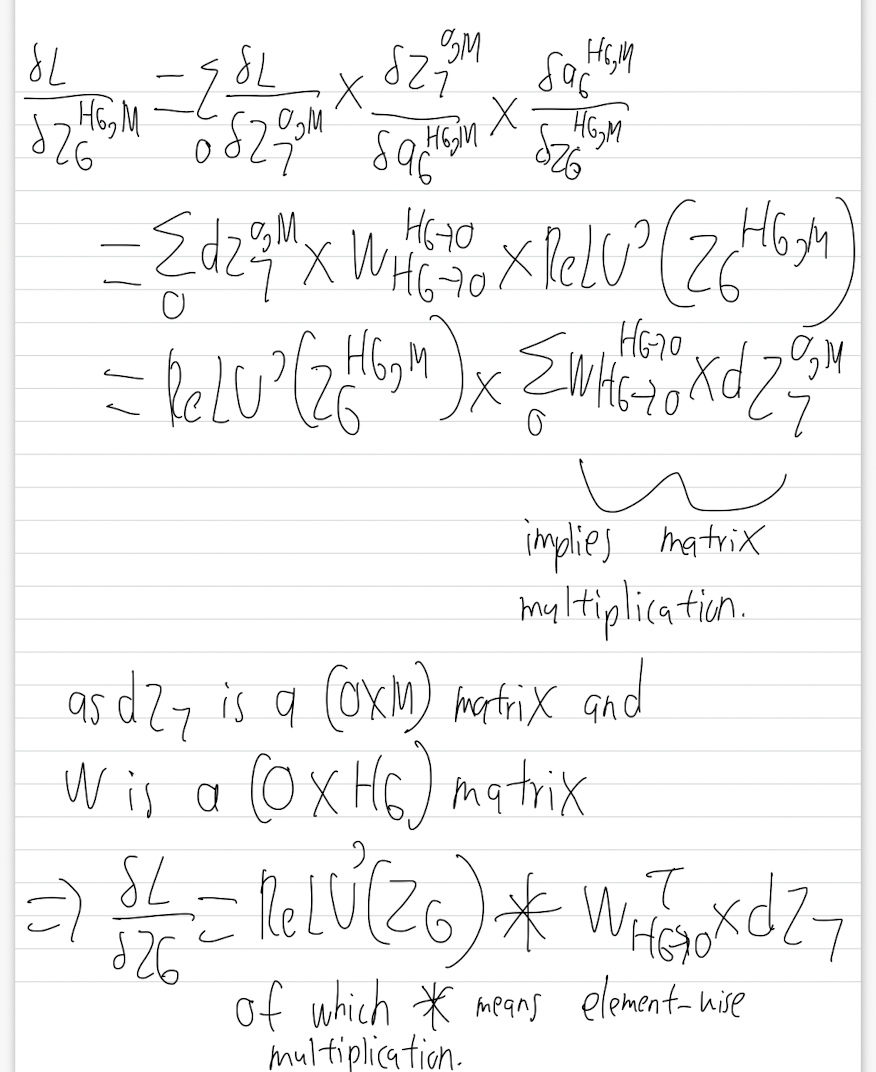 δL/δZ₆^{H6,M} = Σ_O δL/δZ₇^{O,M} × δZ₇^{O,M}/δa₆^{H6,M} × δa₆^{H6,M}/δZ₆^{H6,M}
= Σ_O dZ₇^{O,M} × W_{H6→O}^{H6→O} × ReLU'(Z₆^{H6,M})
= ReLU'(Z₆^{H6,M}) × Σ_O W_{H6→O}^{H6→O} × dZ₇^{O,M}
implies matrix
multiplication.
as dZ₇ is a (O×M) matrix and
W is a (O×H6) matrix
⇒ δL/δZ₆ = ReLU'(Z₆) * W_{H6→O}^T × dZ₇
of which * means element-wise
multiplication.